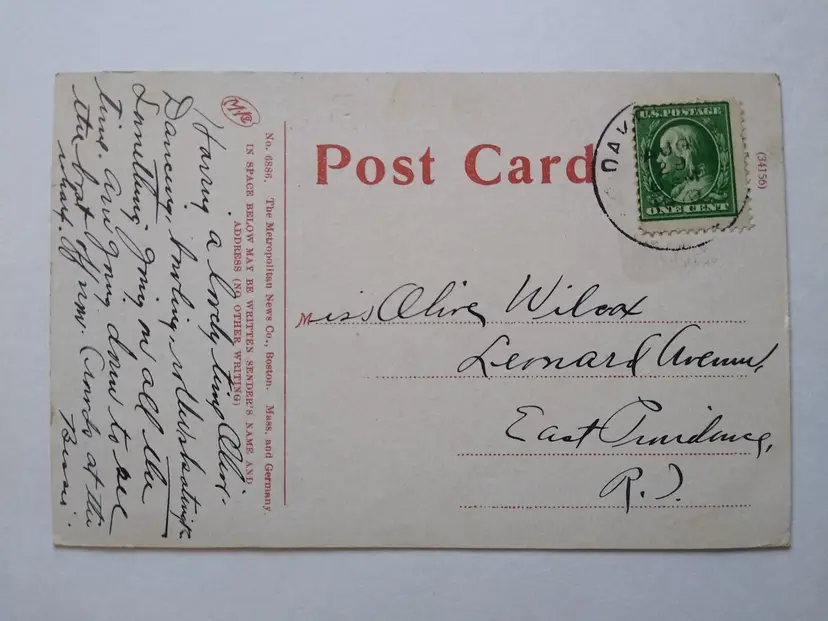 Post Card
U.S. POSTAGE
ONE CENT
AUG
(34156)
Miss Olive Wilcox
Leonard Avenue,
East Providence,
R.I.
No. 6886. The Metropolitan News Co., Boston. Mass., and Germany.
IN SPACE BELOW MAY BE WRITTEN SENDER'S NAME AND
ADDRESS (NO OTHER WRITING)
Having a lovely time Olive.
Dancing, bowling, rollerskating &
Something going on all the
time. Are going down to see
the boat off now. Crowds at the
wharf.
Bessie.